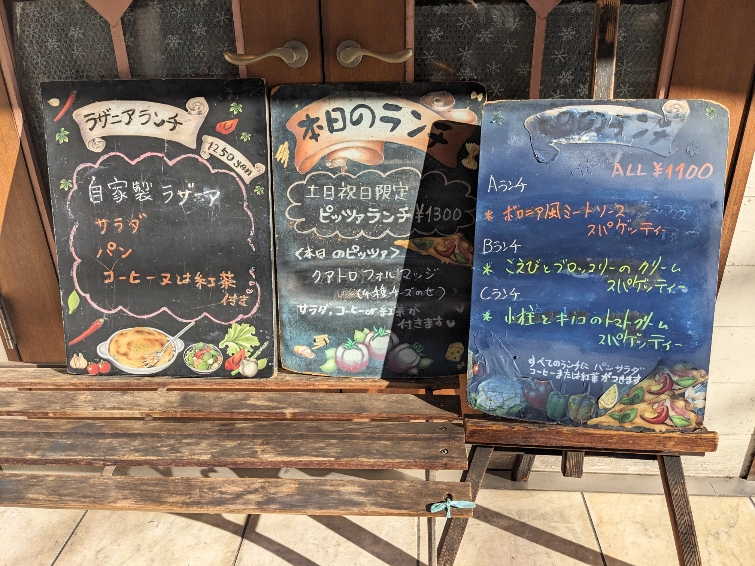 ラザニアランチ
1250yen
自家製 ラザニア
サラダ
パン
コーヒー又は紅茶
付き
本日のランチ
土日祝日限定
ピッツァランチ ¥1300
<本日のピッツァ>
クアトロフォルマッジ
(4種チーズのせ)
サラダ、コーヒーor紅茶が
付きます
本日のランチ
ALL ¥1100
Aランチ
* ボロニア風ミートソース
スパゲッティー
Bランチ
* こえびとブロッコリーのクリーム
スパゲッティー
Cランチ
* 小柱とキノコのトマトクリーム
スパゲッティー
すべてのランチに パン サラダ
コーヒーまたは紅茶がつきます